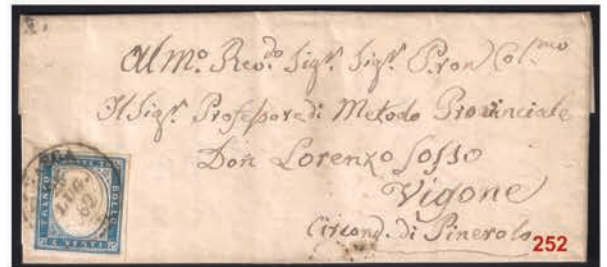 All Mo. Revdo. Sigr. Sigr. Pron Colmo
Il Sigr. Professore di Metodo Provinciale
Don Lorenzo Josso
Vigone
Circond. di Pinerolo
252
FRANCO
BOLLO
C. VENTI
LUG.
62